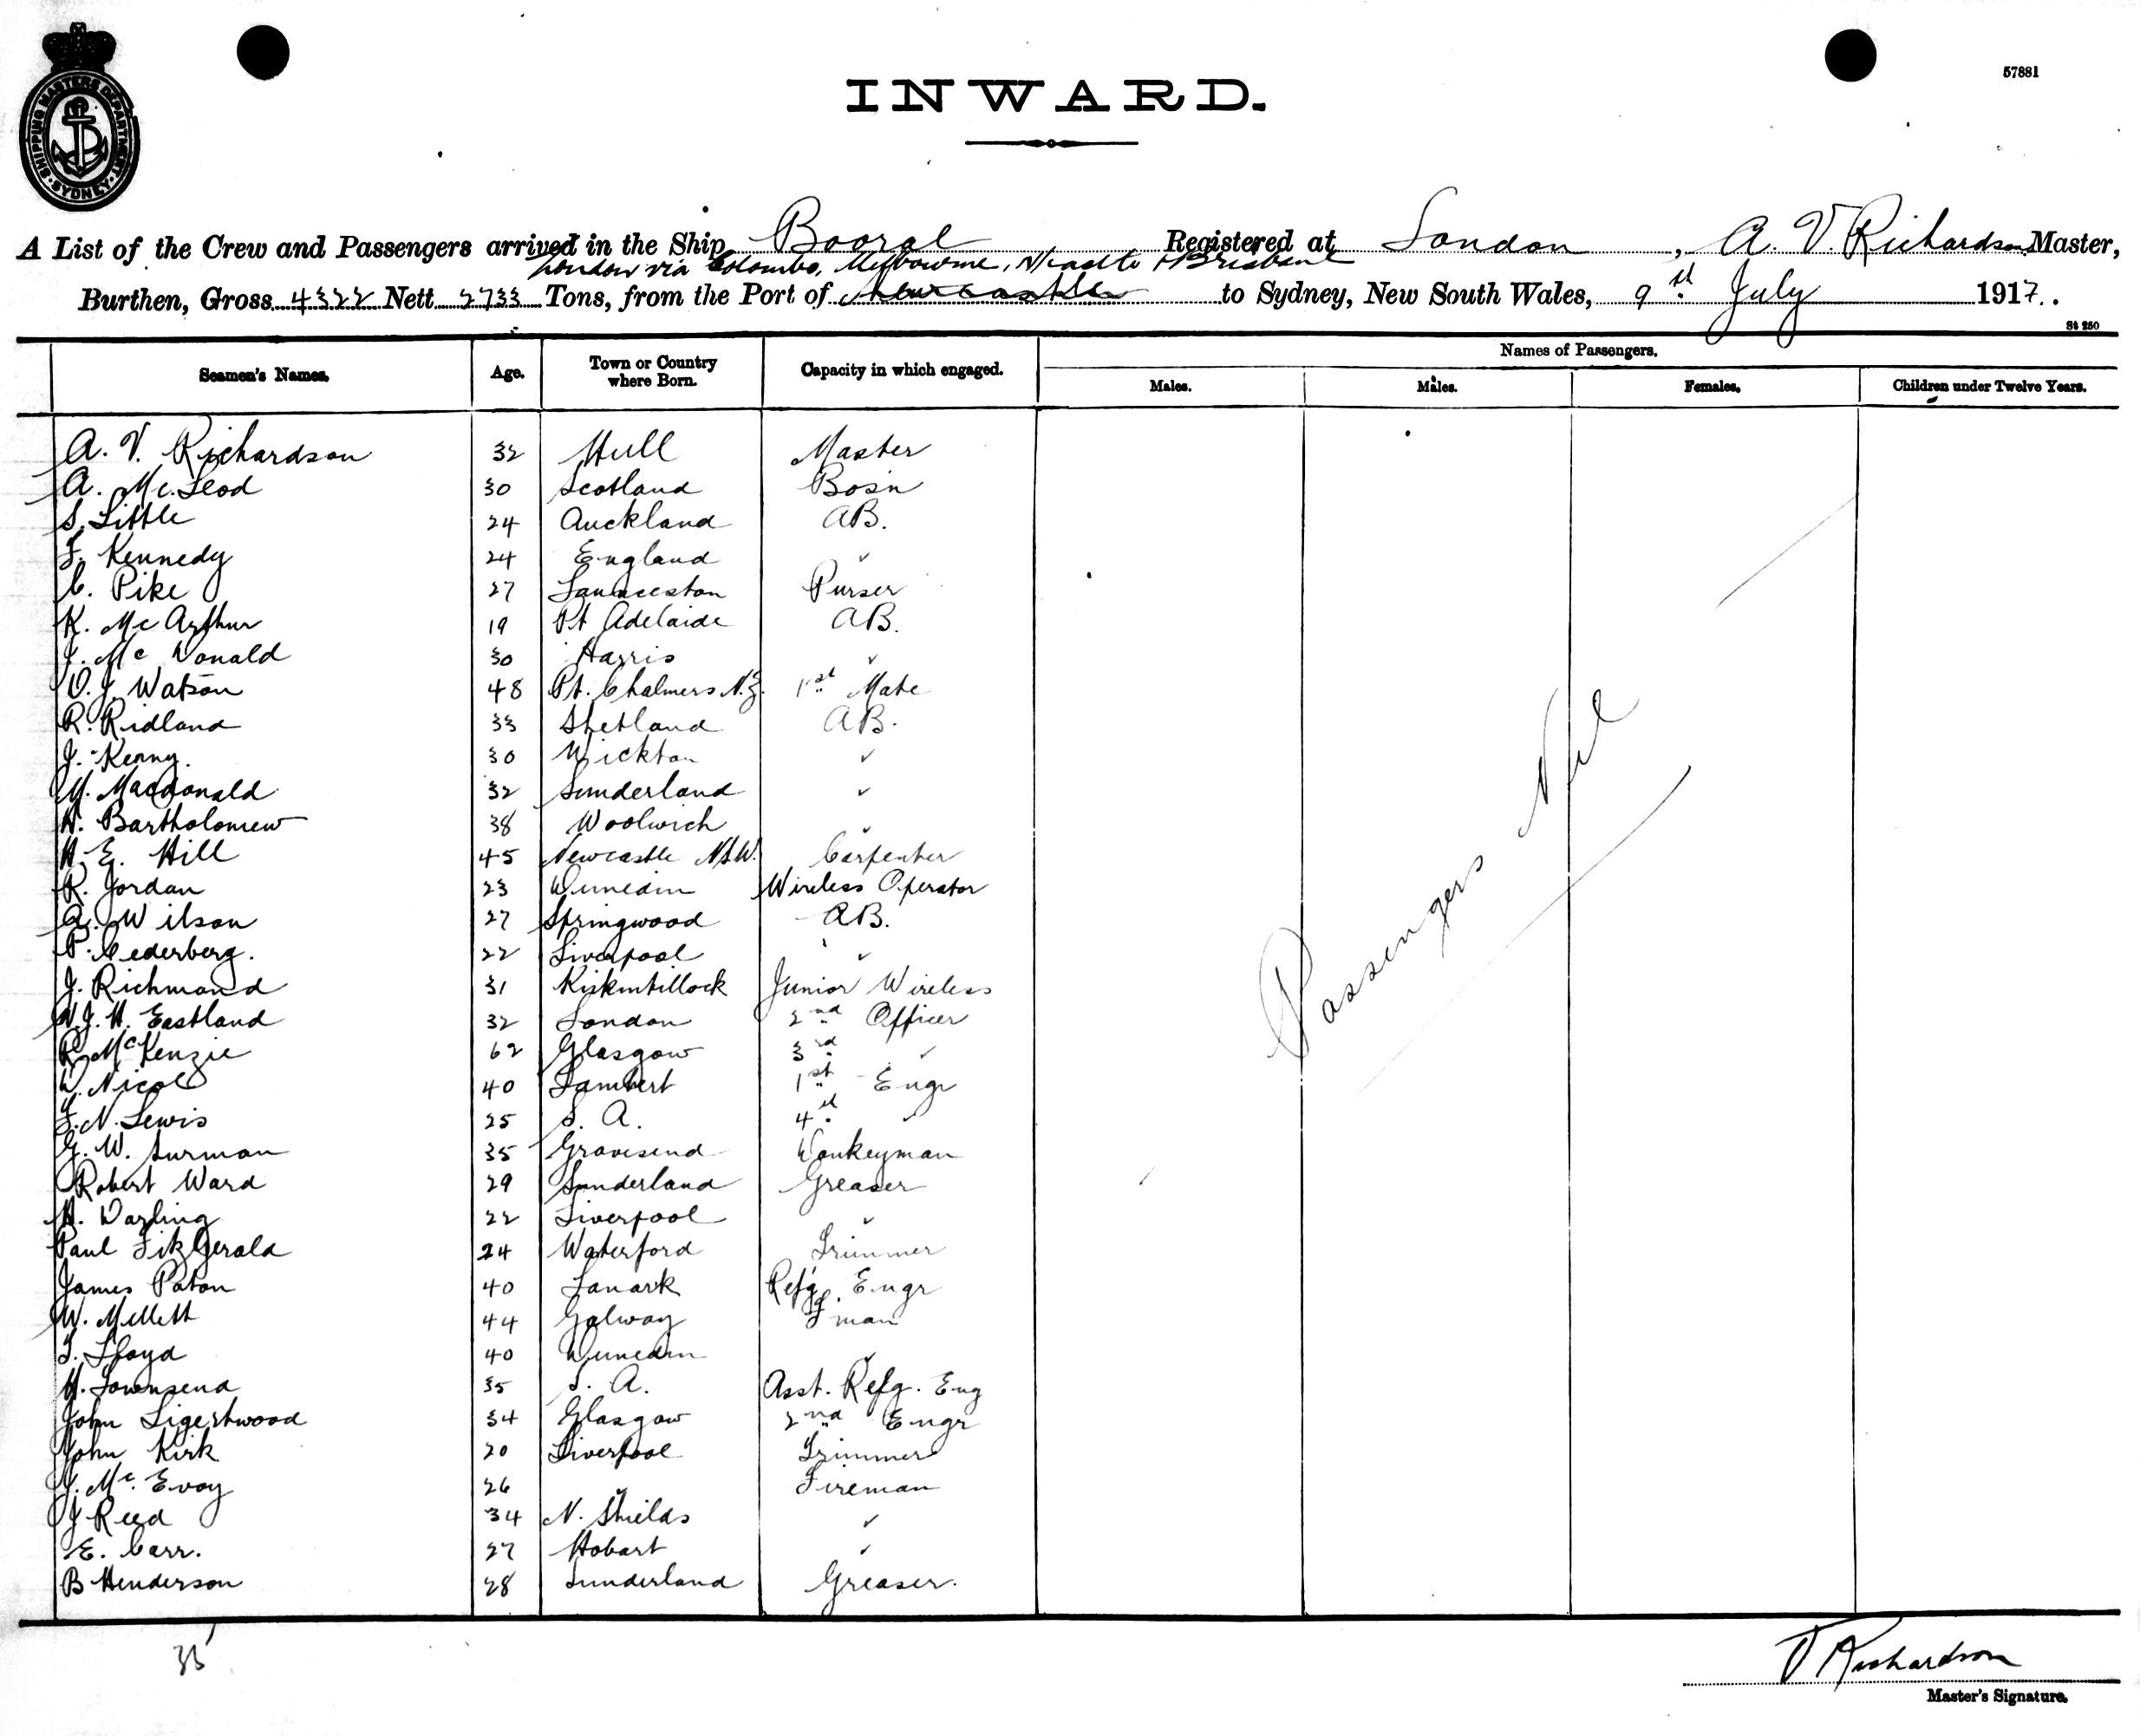 SHIPPING MASTERS DEPARTMENT
SYDNEY
57881
INWARD.
A List of the Crew and Passengers arrived in the Ship Booral Registered at London, A. V. Richardson Master,
London via Colombo, Melbourne, N'castle & Brisbane
Burthen, Gross 4322 Nett 2733 Tons, from the Port of Newcastle to Sydney, New South Wales, 9th July 1917.
St 250
Seamen's Names. Age. Town or Country where Born. Capacity in which engaged. Names of Passengers.
Males. Males. Females. Children under Twelve Years.
A. V. Richardson 32 Hull Master
A. McLeod 30 Scotland Bosn
S. Little 24 Auckland AB.
F. Kennedy 24 England ✓
C. Pike 27 Launceston Purser
K. McArthur 19 Pt Adelaide AB.
J. McDonald 30 Harris ✓
O. J. Watson 48 Pt. Chalmers N.Z. 1st Mate
R. Ridland 33 Shetland AB.
J. Kenny. 30 Wickton ✓
M. Macdonald 32 Sunderland ✓
H. Bartholomew 38 Woolwich ✓
H. E. Hill 45 Newcastle NSW. Carpenter
R. Jordan 23 Dunedin Wireless Operator
A. Wilson 27 Springwood AB.
P. Cederberg. 22 Liverpool ✓
J. Richmond 31 Kirkintillock Junior Wireless
W. J. H. Eastland 32 London 2nd Officer
R. McKenzie 62 Glasgow 3rd ✓
D. Nicol 40 Lambert 1st Engr
F. N. Lewis 25 S. A. 4th ✓
G. W. Surman 35 Gravesend Donkeyman
Robert Ward 29 Sunderland Greaser
H. Darling 22 Liverpool ✓
Paul FitzGerald 24 Waterford Trimmer
James Paton 40 Lanark Refg. Engr
W. Millett 44 Galway Fman
T. Lloyd 40 Dunedin ✓
H. Townsend 35 S. A. Asst. Refg. Eng
John Ligertwood 34 Glasgow 2nd Engr
John Kirk 20 Liverpool Trimmer
J. McEvoy 26 ✓ Fireman
J Reed 34 N. Shields ✓
E. Carr. 27 Hobart ✓
B Henderson 28 Sunderland Greaser.
Passengers Nil
35
V Richardson
Master's Signature.